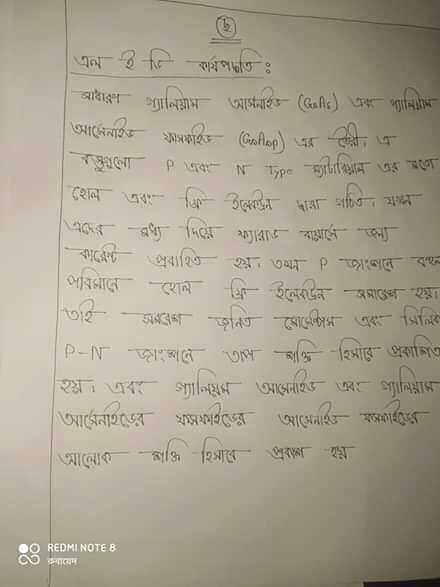 ৬
এল ই ডি কার্যপদ্ধতি :
সাধারণ গ্যালিয়াম আর্সেনাইড (GaAs) এবং গ্যালিয়াম
আর্সেনাইড ফসফাইড (GaAsp) এর তৈরী, এ
বস্তুগুলো P এবং N Type ম্যাটারিয়াল এর মতো
হোল এবং ফ্রি ইলেকট্রন দ্বারা গঠিত, যখন
এদের মধ্য দিয়ে ফ্যারাড বায়াসে জন্য
কারেন্ট প্রবাহিত হয়, তখন P জাংশনে বহুল
পরিমানে হোল ফ্রি ইলেকট্রন সমাবেশ হয়।
তাই সমাবেশ জনিত এবং
P-N জাংশনে তাপ শক্তি হিসাবে প্রকাশিত
হয়। এবং গ্যালিয়াম আর্সেনাইড এবং গ্যালিয়াম
আর্সেনাইডের ফসফাইডের আর্সেনাইড ফসফাইডের
আলোক শক্তি হিসাবে প্রকাশ হয়
REDMI NOTE 8